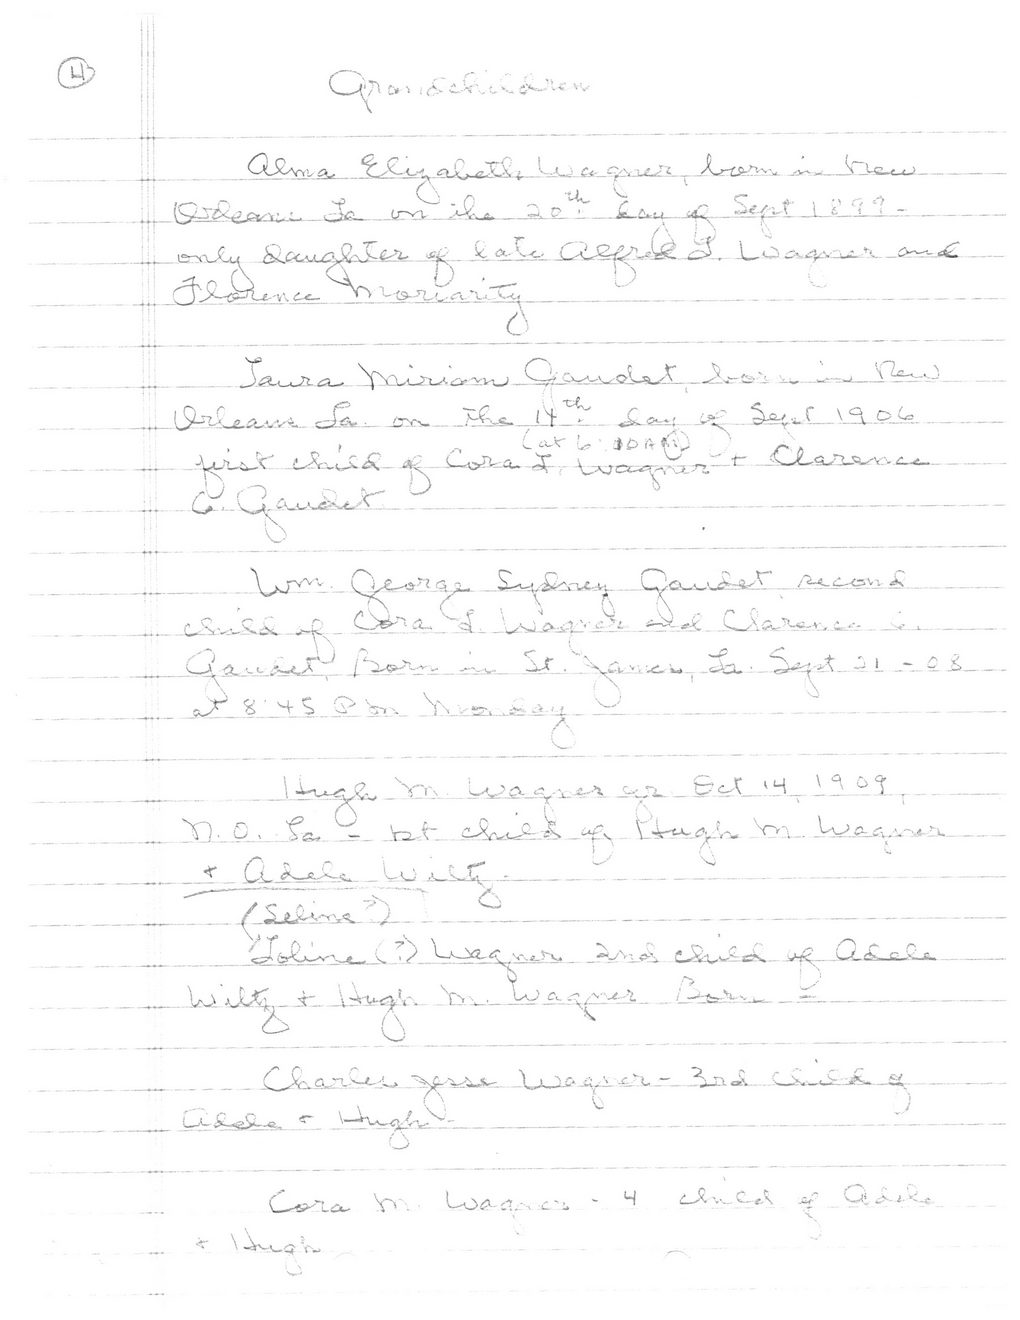 4
Grandchildren
Alma Elizabeth Wagner, born in New
Orleans La on the 20th day of Sept 1899 -
only daughter of late Alfred L. Wagner and
Florence Moriarity
Laura Miriam Gaudet, born in New
Orleans La. on the 14th day of Sept 1906
(at 6:10 AM)
first child of Cora L. Wagner + Clarence
C. Gaudet.
Wm. George Sydney Gaudet, second
child of Cora L. Wagner and Clarence C.
Gaudet, Born in St. James, La. Sept 21 - 08
at 8:45 Pm Monday
Hugh M. Wagner Jr. Oct 14, 1909,
N.O. La - 1st child of Hugh M. Wagner
+ Adele Wiltz.
(Seline?)
Loline (?) Wagner 2nd child of Adele
Wiltz + Hugh M. Wagner Born -
Charles Jesse Wagner - 3rd child of
Adele + Hugh -
Cora M. Wagner - 4 child of Adele
+ Hugh